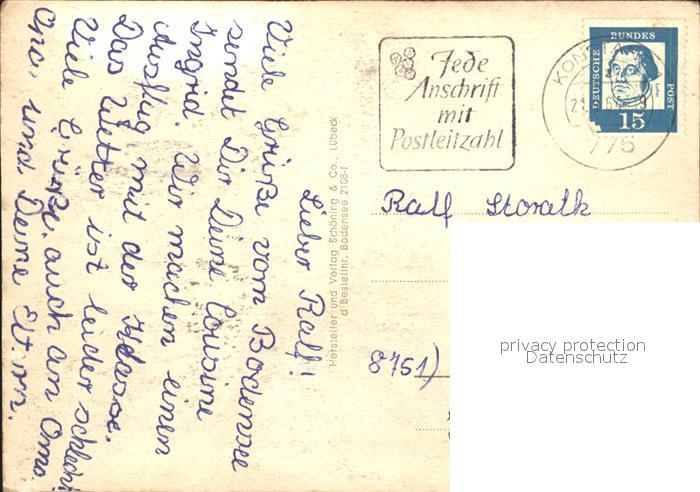 Lieber Ralf!
Viele Grüße vom Bodensee
sendet Dir Deine Cousine
Ingrid. Wir machen einen
Ausflug mit der Klasse.
Das Wetter ist leider schlecht!
Viele Grüße, auch an Oma,
Opa, und Deine Eltern.
Hersteller und Verlag Schöning & Co., Lübeck
d Bestellnr. Bodensee 2108-f
Jede
Anschrift
mit
Postleitzahl
775
DEUTSCHE BUNDES POST
15
Ralf
8751)
privacy protection
Datenschutz